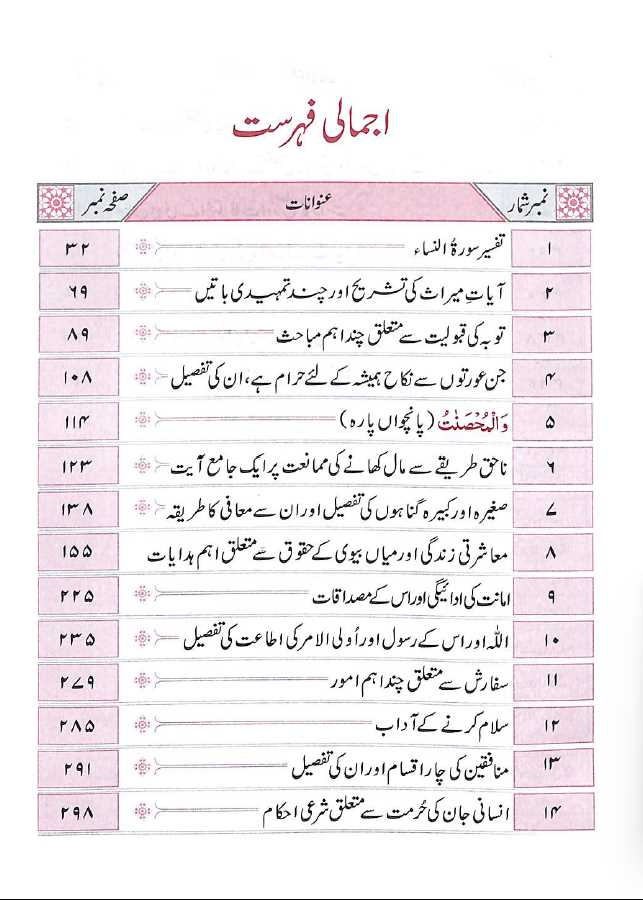 اجمالی فہرست
نمبر شمار عنوانات صفحہ نمبر
۱ تفسیر سورۃ النساء ۳۲
۲ آیاتِ میراث کی تشریح اور چند تمہیدی باتیں ۶۹
۳ توبہ کی قبولیت سے متعلق چند اہم مباحث ۸۹
۴ جن عورتوں سے نکاح ہمیشہ کے لئے حرام ہے، ان کی تفصیل ۱۰۸
۵ وَالْمُحْصَنٰتُ (پانچواں پارہ) ۱۱۴
۶ ناحق طریقے سے مال کھانے کی ممانعت پر ایک جامع آیت ۱۲۳
۷ صغیرہ اور کبیرہ گناہوں کی تفصیل اور ان سے معافی کا طریقہ ۱۳۸
۸ معاشرتی زندگی اور میاں بیوی کے حقوق سے متعلق اہم ہدایات ۱۵۵
۹ امانت کی ادائیگی اور اس کے مصداقات ۲۲۵
۱۰ اللہ اور اس کے رسول اور اُولی الامر کی اطاعت کی تفصیل ۲۳۵
۱۱ سفارش سے متعلق چند اہم امور ۲۷۹
۱۲ سلام کرنے کے آداب ۲۸۵
۱۳ منافقین کی چار اقسام اور ان کی تفصیل ۲۹۱
۱۴ انسانی جان کی حُرمت سے متعلق شرعی احکام ۲۹۸